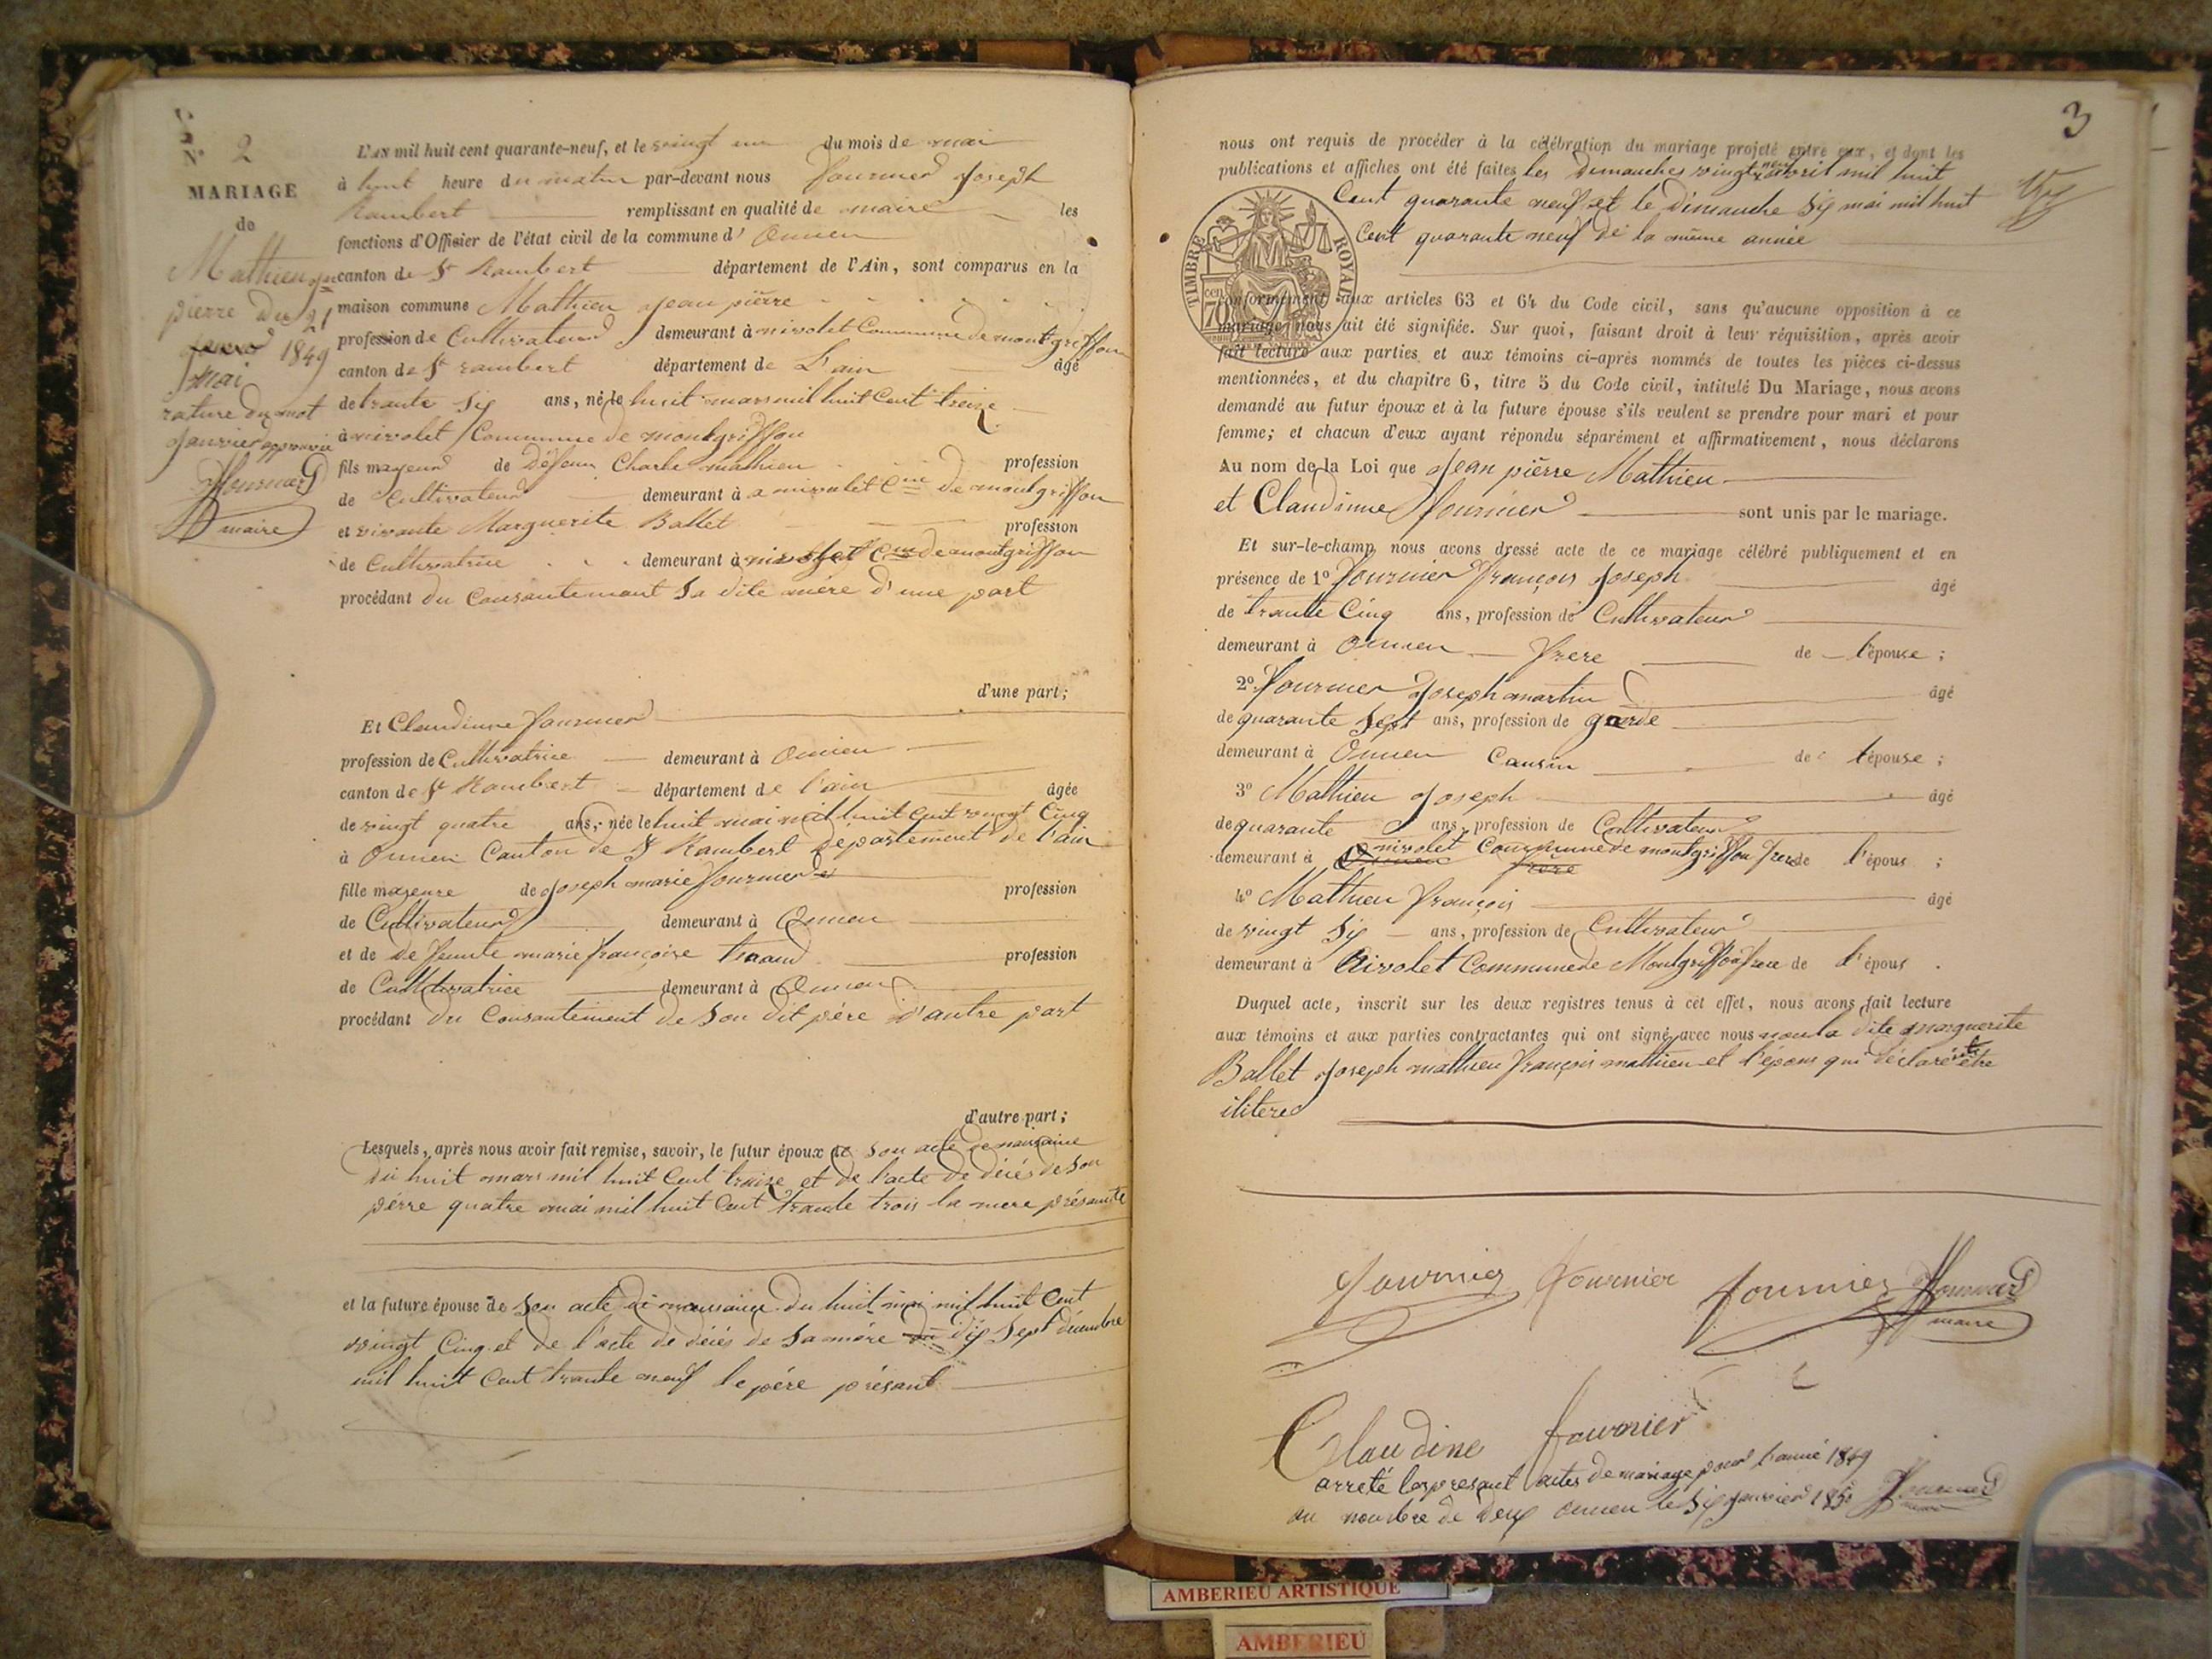 N° 2
MARIAGE
de
Mathieu jn
pierre du 21
janvier 1849
mai
rature du mot
janvier approuvée
Fournier
maire
L'AN mil huit cent quarante-neuf, et le vingt un du mois de mai
à huit heure du matin par-devant nous Fournier Joseph
Rambert remplissant en qualité de maire les
fonctions d'Officier de l'état civil de la commune d' Oncieu
canton de St Rambert département de l'Ain, sont comparus en la
maison commune Mathieu Jean pierre
profession de Cultivateur demeurant à nivolet Commune de montgriffon
canton de St rambert département de L'ain âgé
de trante six ans, né le huit mars mil huit Cent treize
à nivolet Commune de montgriffon
fils mageur de défeun Charle mathieu profession
de Cultivateur demeurant à a nivolet Cne de montgriffon
et vivante Marguerite Ballet profession
de Cultivatrice demeurant à nivollet Cne de montgriffon
procédant du Consantemant Sa dite mére d'une part
d'une part;
Et Claudinne Fournier
profession de Cultivatrice demeurant à Oncieu
canton de St Rambert département de l'ain âgée
de vingt quatre ans, née le huit mai mil huit Cent vingt Cinq
à Oncieu Canton de St Rambert Département de l'ain
fille mageure de Joseph marie Fournier profession
de Cultivateur demeurant à Oncieu
et de défeunte marie françoise profession
de Cultivatrice demeurant à Oncieu
procédant du Consantement de Son dit pére d'autre part
d'autre part;
Lesquels, après nous avoir fait remise, savoir, le futur époux de Son acte de naissance
du huit mars mil huit Cent traize et de l'acte de décés de Son
pérre quatre mai mil huit Cent trante trois la mere présante
et la future épouse de Son acte de naissance du huit mai mil huit Cent
vingt Cinq et de l'acte de décés de Sa mére du dix Sept décembre
mil huit Cent trante neuf le pére présant
3
nous ont requis de procéder à la célébration du mariage projeté entre eux, et dont les
publications et affiches ont été faites les Dimanches vingt neuf avril mil huit
Cent quarante neuf et le Dimanche Six mai mil huit
Cent quarante neuf de la même année
TIMBRE ROYAL
70 cen
conformément aux articles 63 et 64 du Code civil, sans qu'aucune opposition à ce
mariage nous ait été signifiée. Sur quoi, faisant droit à leur réquisition, après avoir
fait lecture aux parties et aux témoins ci-après nommés de toutes les pièces ci-dessus
mentionnées, et du chapitre 6, titre 5 du Code civil, intitulé Du Mariage, nous avons
demandé au futur époux et à la future épouse s'ils veulent se prendre pour mari et pour
femme; et chacun d'eux ayant répondu séparément et affirmativement, nous déclarons
Au nom de la Loi que Jean pierre Mathieu
et Claudinne Fournier sont unis par le mariage.
Et sur-le-champ nous avons dressé acte de ce mariage célébré publiquement et en
présence de 1° Fournier françois Joseph âgé
de trante Cinq ans, profession de Cultivateur
demeurant à Oncieu frere de l'épouse;
2° Fournier Joseph martin âgé
de quarante Sept ans, profession de garde
demeurant à Oncieu Causin de l'épouse;
3° Mathieu Joseph âgé
de quarante ans, profession de Cultivateur
demeurant à Oncieu nivolet Commune de montgriffon frère frere de l'épous;
4° Mathieu françois âgé
de vingt Six ans, profession de Cultivateur
demeurant à Nivolet Commune de Montgriffon frere de l'épous.
Duquel acte, inscrit sur les deux registres tenus à cet effet, nous avons fait lecture
aux témoins et aux parties contractantes qui ont signé avec nous non la dite marguerite
Ballet Joseph mathieu françois mathieu et l'épous qui déclare être
iliteré
Fournier Fournier Fournier Fournier
maire
Claudine fournier
arreté les presant actes de mariage pour l'anné 1849
au nombre de deux oncieu le Six janvier 1850 Fournier
maire
AMBERIEU ARTISTIQUE
AMBERIEU